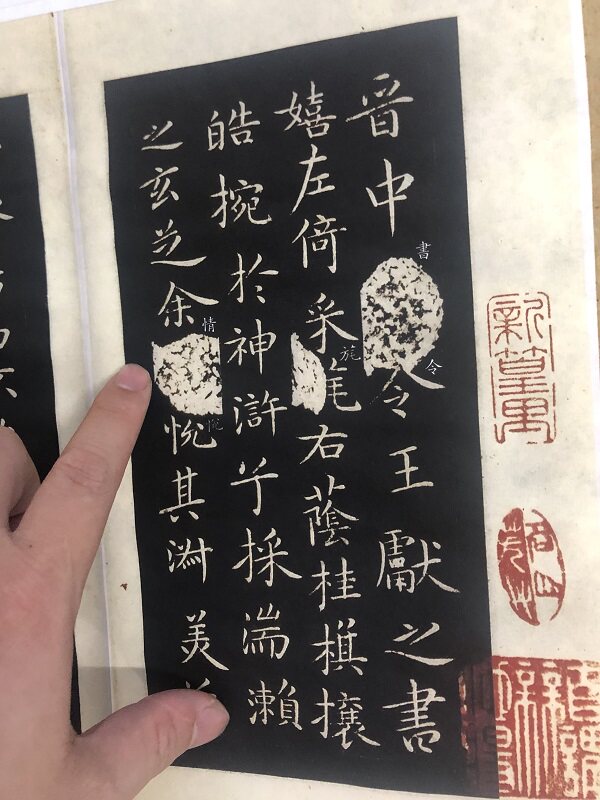 晉中書令王獻之書
嬉左倚采旄右蔭桂旗攘
皓捥於神滸兮採湍瀨
之玄芝余情悅其淑美